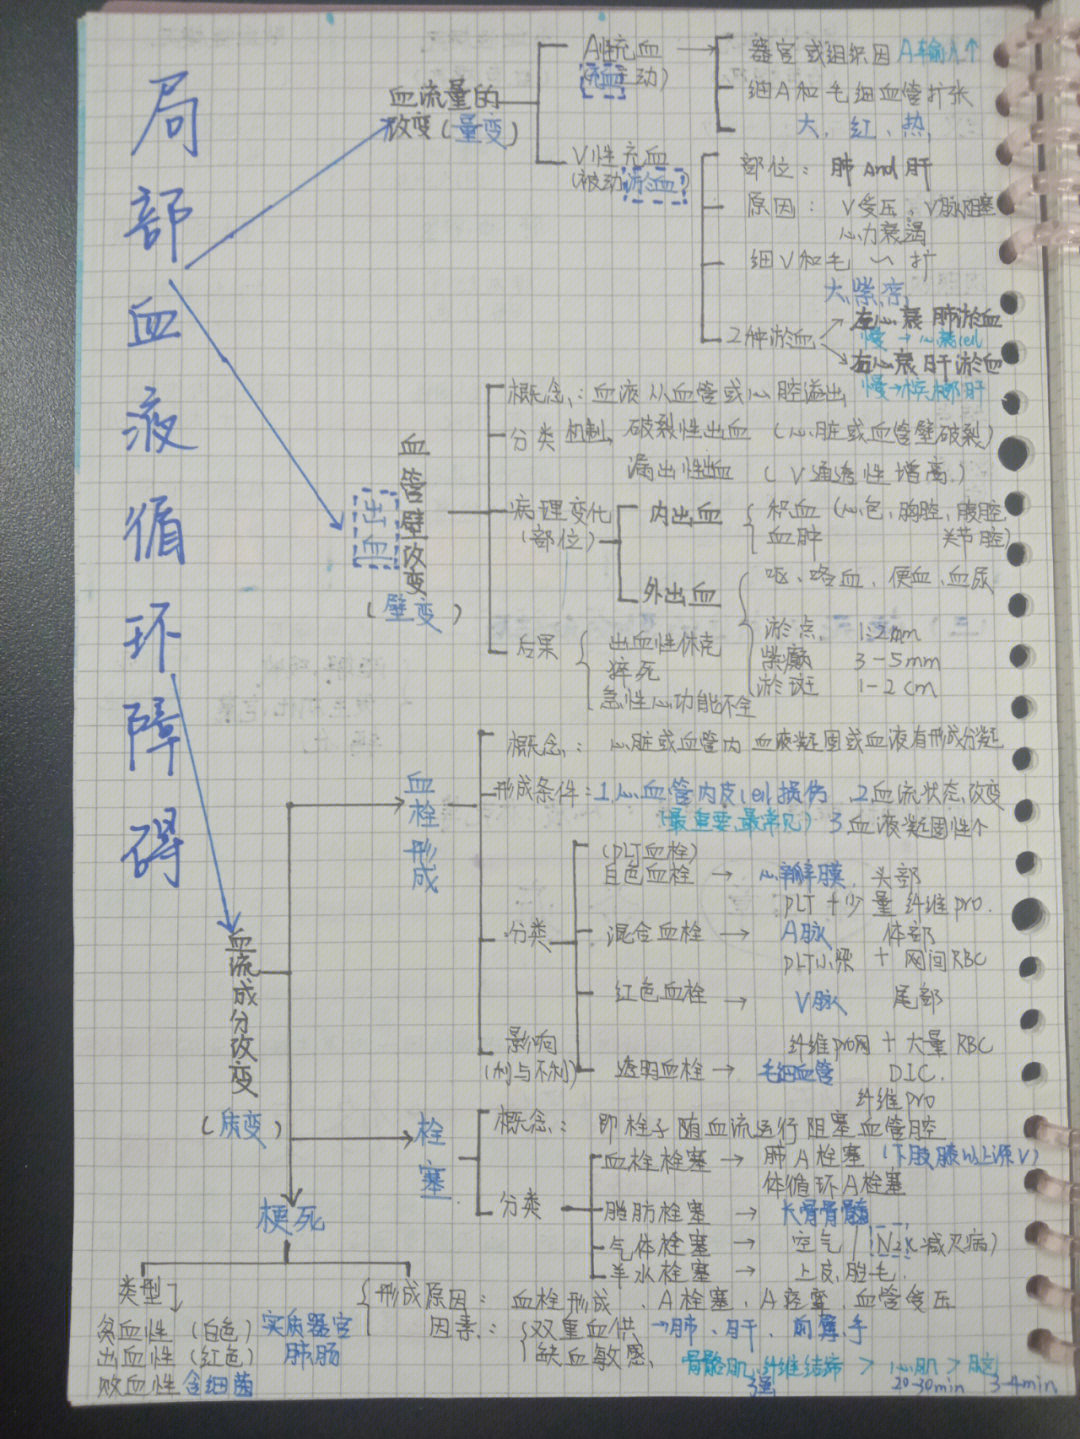 局部血液循环障碍
血流量的
改变(量变)
A性充血
(充血主动)
器官或组织因A输入↑
细A和毛细血管扩张
大、红、热
V性充血
(被动淤血)
部位：肺And肝
原因：V受压，V脉阻塞
心力衰竭
细V和毛~扩
大,紫,凉
2种淤血
左心衰 肺淤血
慢→心衰cell
右心衰 肝淤血
慢→槟榔肝
出血
血管壁改变
(壁变)
概念：血液从血管或心腔溢出
分类 机制 破裂性出血 (心脏或血管壁破裂)
漏出性出血 (V通透性增高)
病理变化
(部位)
内出血
积血(心包,胸腔,腹腔
关节腔)
血肿
外出血
呕、咯血、便血、血尿
淤点 1-2mm
紫癜 3-5mm
淤斑 1-2cm
后果
出血性休克
猝死
急性心功能不全
血流成分改变
(质变)
血栓形成
概念：心脏或血管内 血液凝固或血液有形成分凝
形成条件：1.心.血管内皮cell损伤 2.血流状态改变
(最重要,最常见) 3.血液凝固性↑
分类
(PLT血栓)
白色血栓 → 心瓣膜 头部
PLT+少量纤维pro.
混合血栓 → A脉 体部
PLT小梁 + 网间RBC
红色血栓 → V脉 尾部
纤维pro网 + 大量RBC
透明血栓 → 毛细血管 DIC.
纤维pro
影响
(利与不利)
栓塞
概念：即栓子随血流运行阻塞血管腔
分类
血栓栓塞 → 肺A栓塞 (下肢膝以上深V)
体循环A栓塞
脂肪栓塞 → 长骨骨髓
气体栓塞 → 空气/(N2 减压病)
羊水栓塞 → 上皮,胎毛.
梗死
类型
贫血性(白色) 实质器官
出血性(红色) 肺肠
败血性 含细菌
形成原因：血栓形成、A栓塞、A痉挛、血管受压
因素：双重血供→肺、肝、前臂、手
缺血敏感、骨骼肌、纤维结缔 > 心肌 > 脑
强 20-30min 3-4min